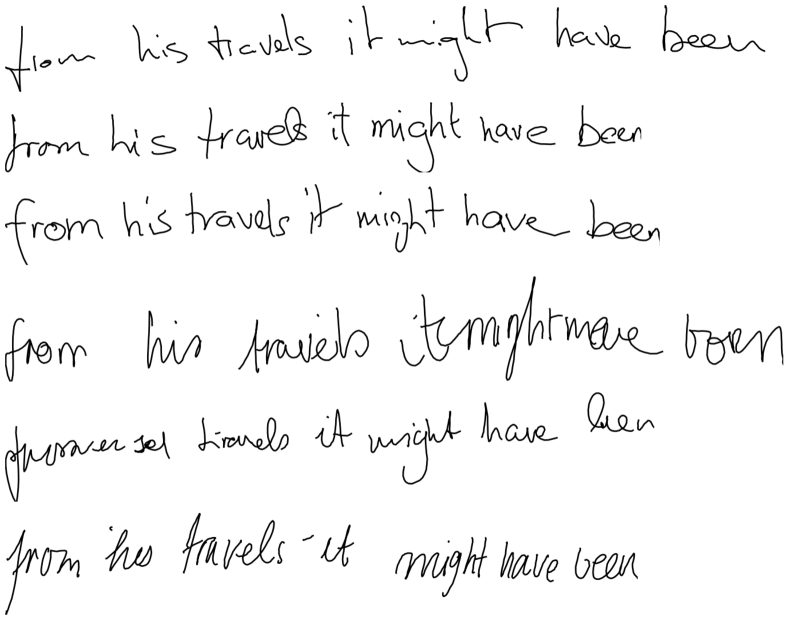 from his travels it might have been
from his travels it might have been
from his travels it might have been
from his travels it might have been
travels it might have been
from his travels - it might have been